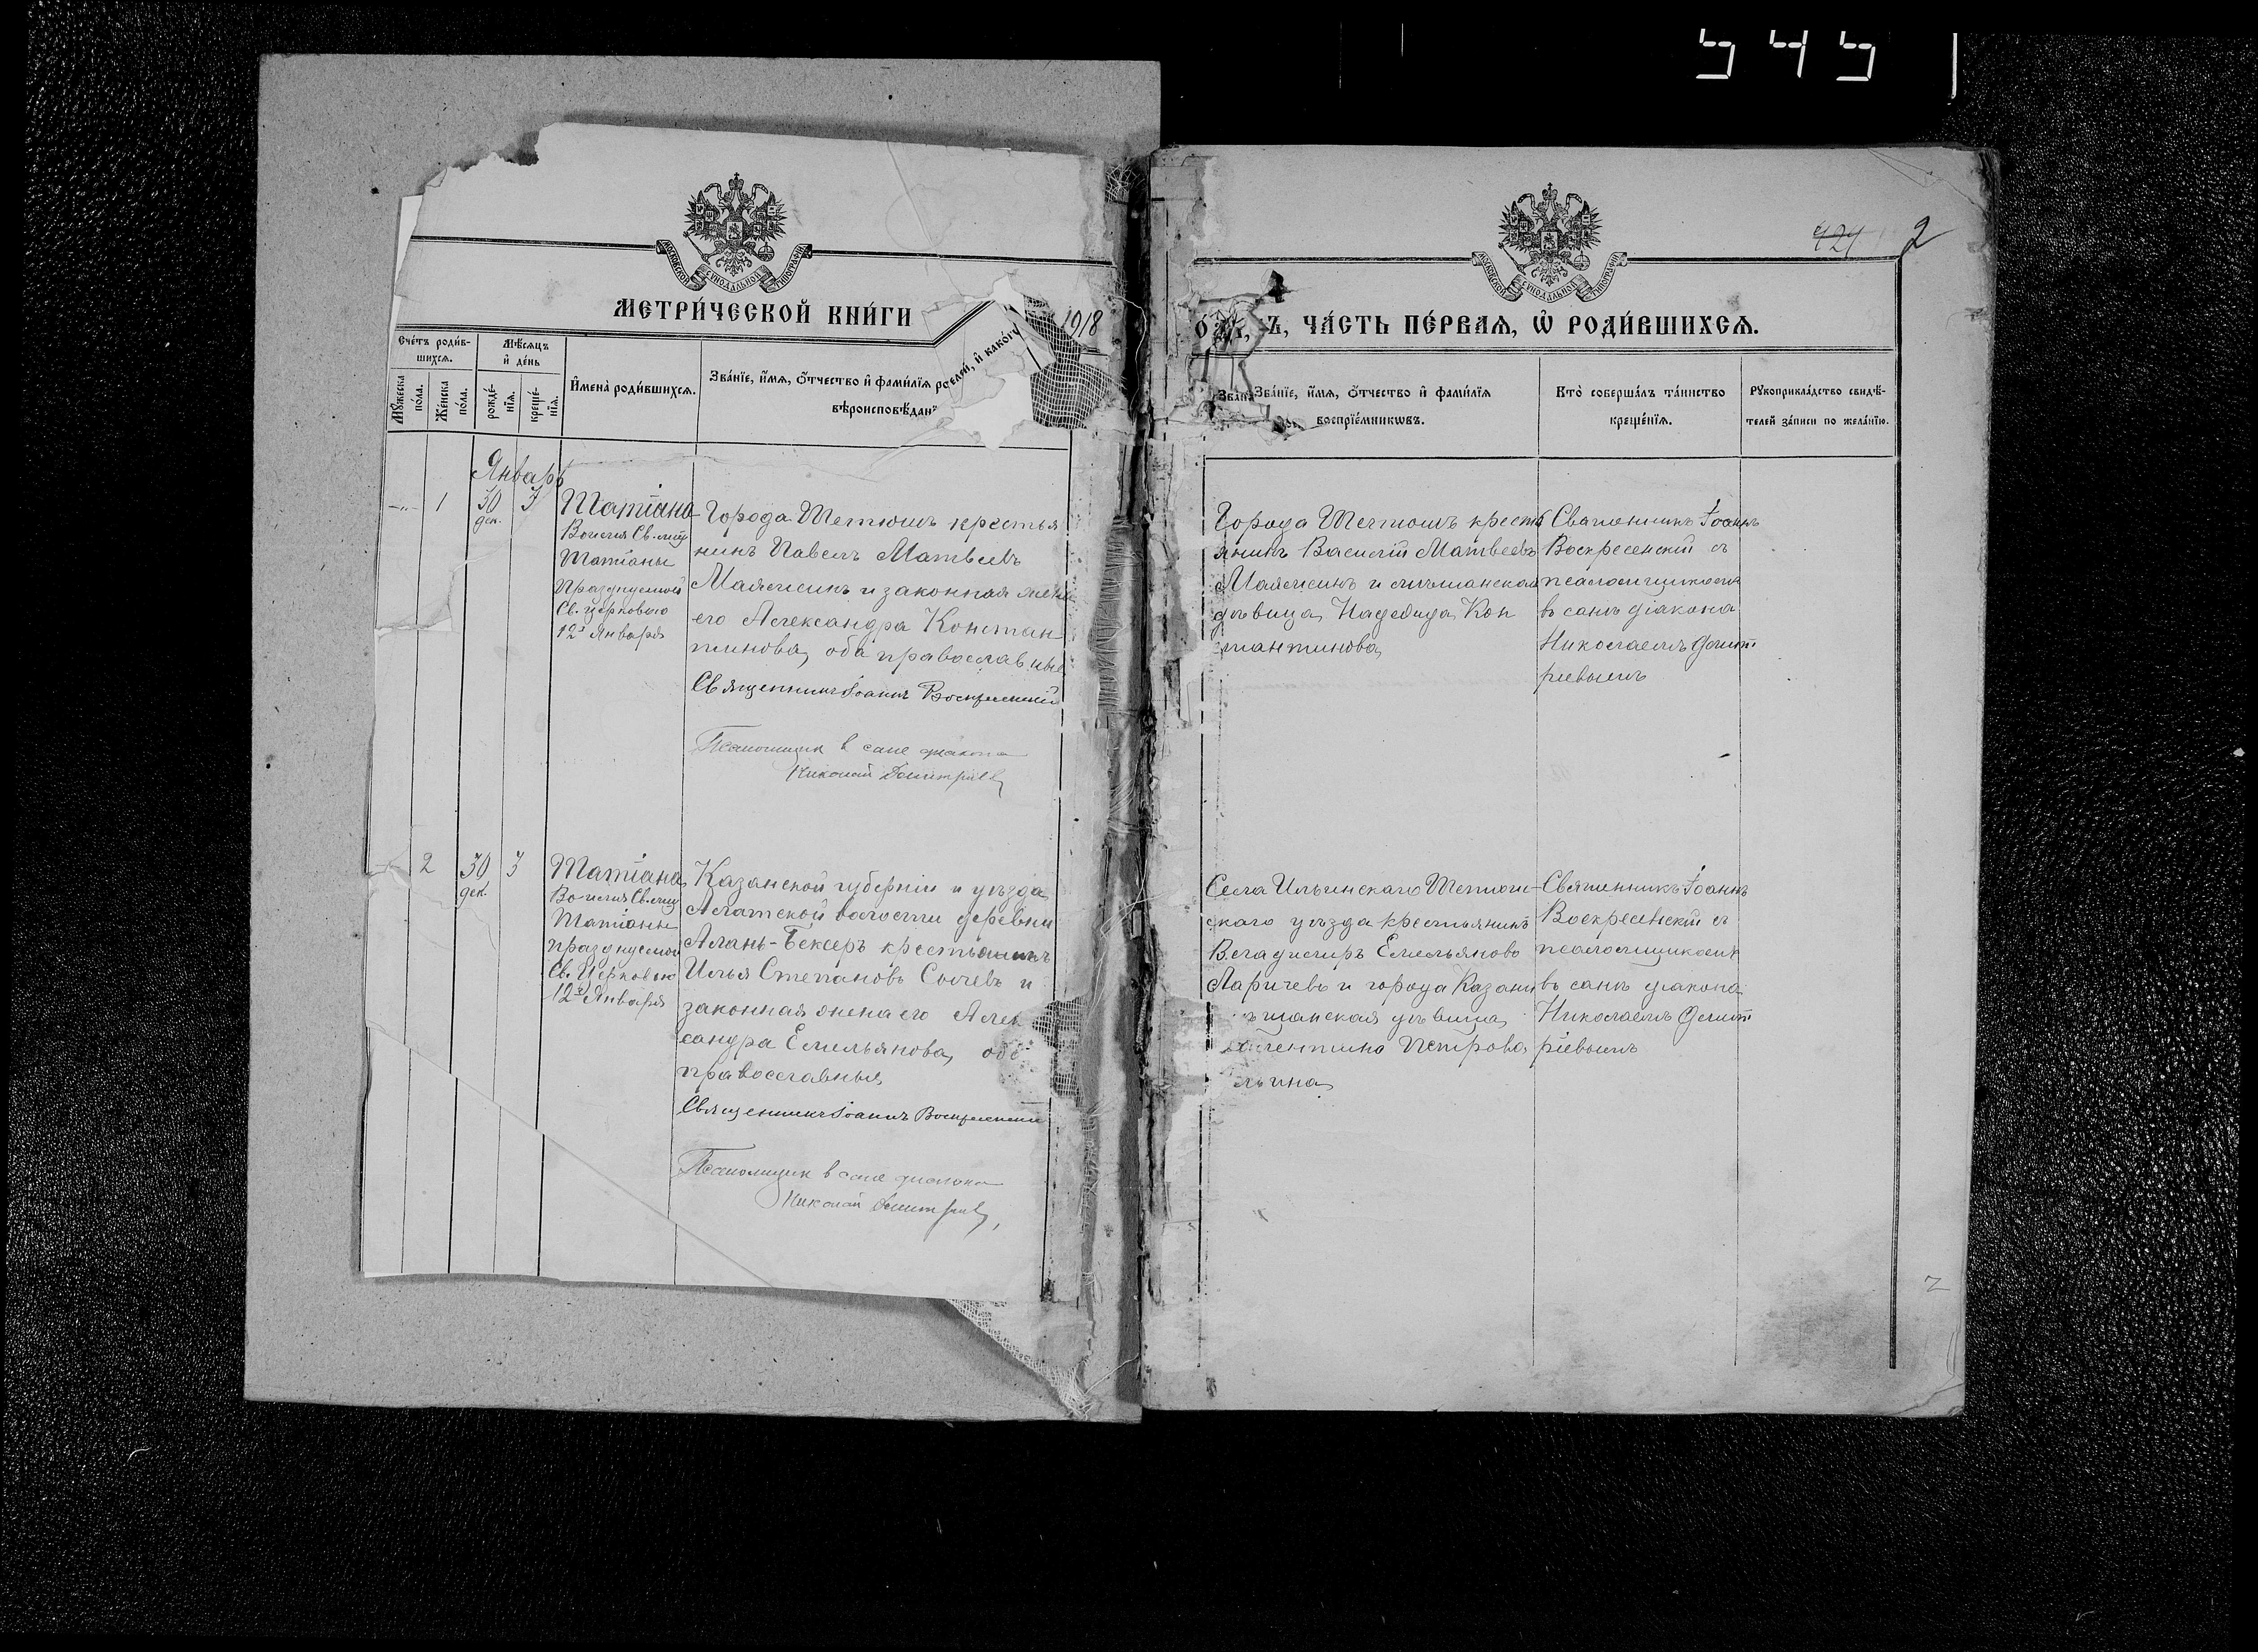 545
МОСКОВСКОЙ СУНОДАЛЬНОЙ ТИПОГРАФІИ
МЕТРИ́ЧЕСКОЙ КНИ́ГИ
1918
Сче́тъ роди́в-
шихсѧ.
Мѣ́сѧцъ
и҆ де́нь
Мꙋ́жеска
по́ла.
Же́нска
по́ла.
рожде́-
нїѧ.
креще́-
нїѧ.
И҆мена̀ роди́вшихсѧ.
Зва́нїе, и҆́мѧ, ѻ҆́тчество и҆ фами́лїѧ
рodителей, и҆ како́гѡ
вѣроисповѣ́данї
Январь
-"- 1 30 3
дек.
Татіана
Во имя Св. муц
Татіаны
Празднуемой
Св. церковью
12го Января
Города Тетюшъ крестья
нинъ Павелъ Матвеевъ
и законная жена
его Александра Констан-
тинова, оба православные
Священникъ Іоаннъ Воскресенскій
Псаломщик в сане диакона
Николай Димитриев
2 30 3
дек.
Татіана
Во имя Св. муц
Татіаны
празднуемой
Св. Церковью
12го Января
Казанской губерніи и уѣзда
Алатской волости деревни
Алань-Бексеръ крестьянинъ
Илья Степановъ Сычевъ и
законная жена его Алек
сандра Емельянова, оба
православныя
Священникъ Іоаннъ Воскресенскій
Псаломщик в сане диакона
Николай Димитриев
МОСКОВСКОЙ СУНОДАЛЬНОЙ ТИПОГРАФІИ
424 2
Ъ, ЧА́СТЬ ПЕ́РВАѦ, Ѽ РОДИ́ВШИХСѦ.
Зва́нїе, и҆́мѧ, ѻ҆́тчество и҆ фами́лїѧ
воспрїе́мникѡвъ.
Кто̀ соверша́лъ та́инство
креще́нїѧ.
Рꙋкоприкла́дство свидѣ́-
телей за́писи по жела́нїю.
Города Тетюшъ кресть
янинъ Василій Матвеевъ
и мѣщанская
дѣвица Надежда Кон
стантинова
Священникъ Іоаннъ
Воскресенскій съ
псаломщикомъ
въ санѣ діакона
Николаемъ Димит
ріевымъ
Села Ильинскаго Тетюш-
скаго уѣзда крестьянинъ
Владимиръ Емельяново
Ларичевъ и города Казани
ѣщанская дѣвица
алентина Петрова
льина
Священникъ Іоаннъ
Воскресенскій съ
псаломщикомъ
въ санѣ діакона
Николаемъ Димит
ріевымъ
2